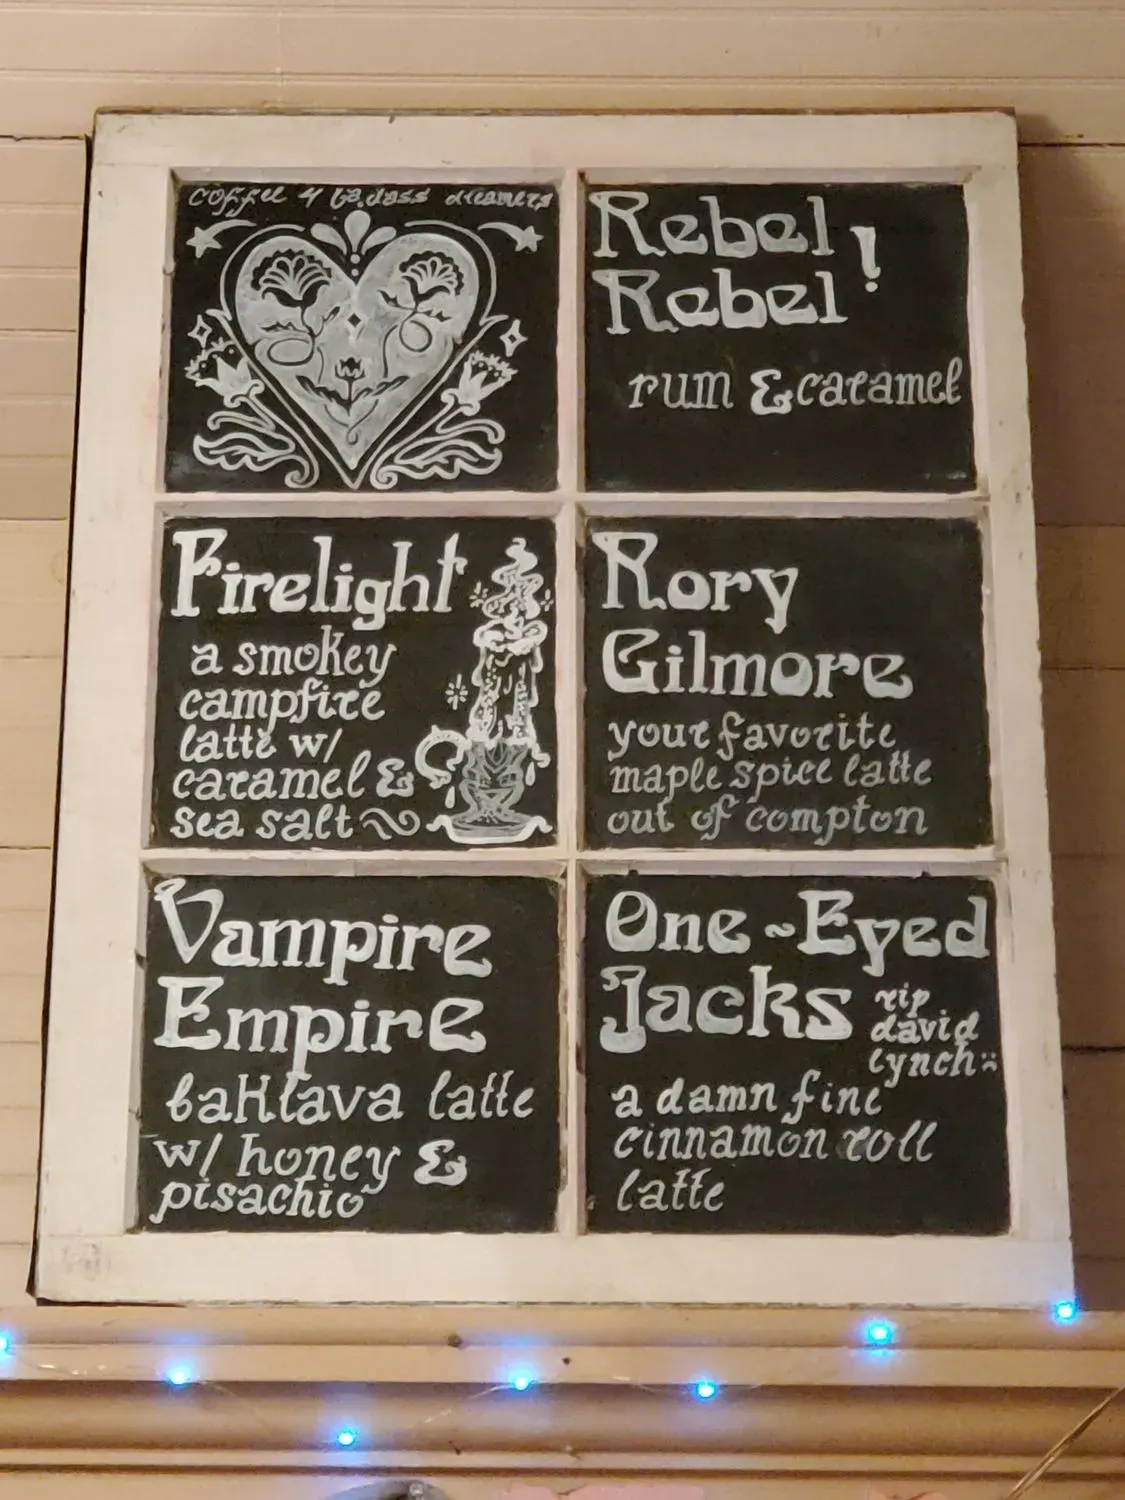 coffee 4 badass dreamers
Rebel
Rebel!
rum & caramel
Firelight
a smokey
campfire
latte w/
caramel &
sea salt
Rory
Gilmore
your favorite
maple spice latte
out of compton
Vampire
Empire
baklava latte
w/ honey &
pisachio
One-Eyed
Jacks
rip
david
lynch :(
a damn fine
cinnamon roll
latte